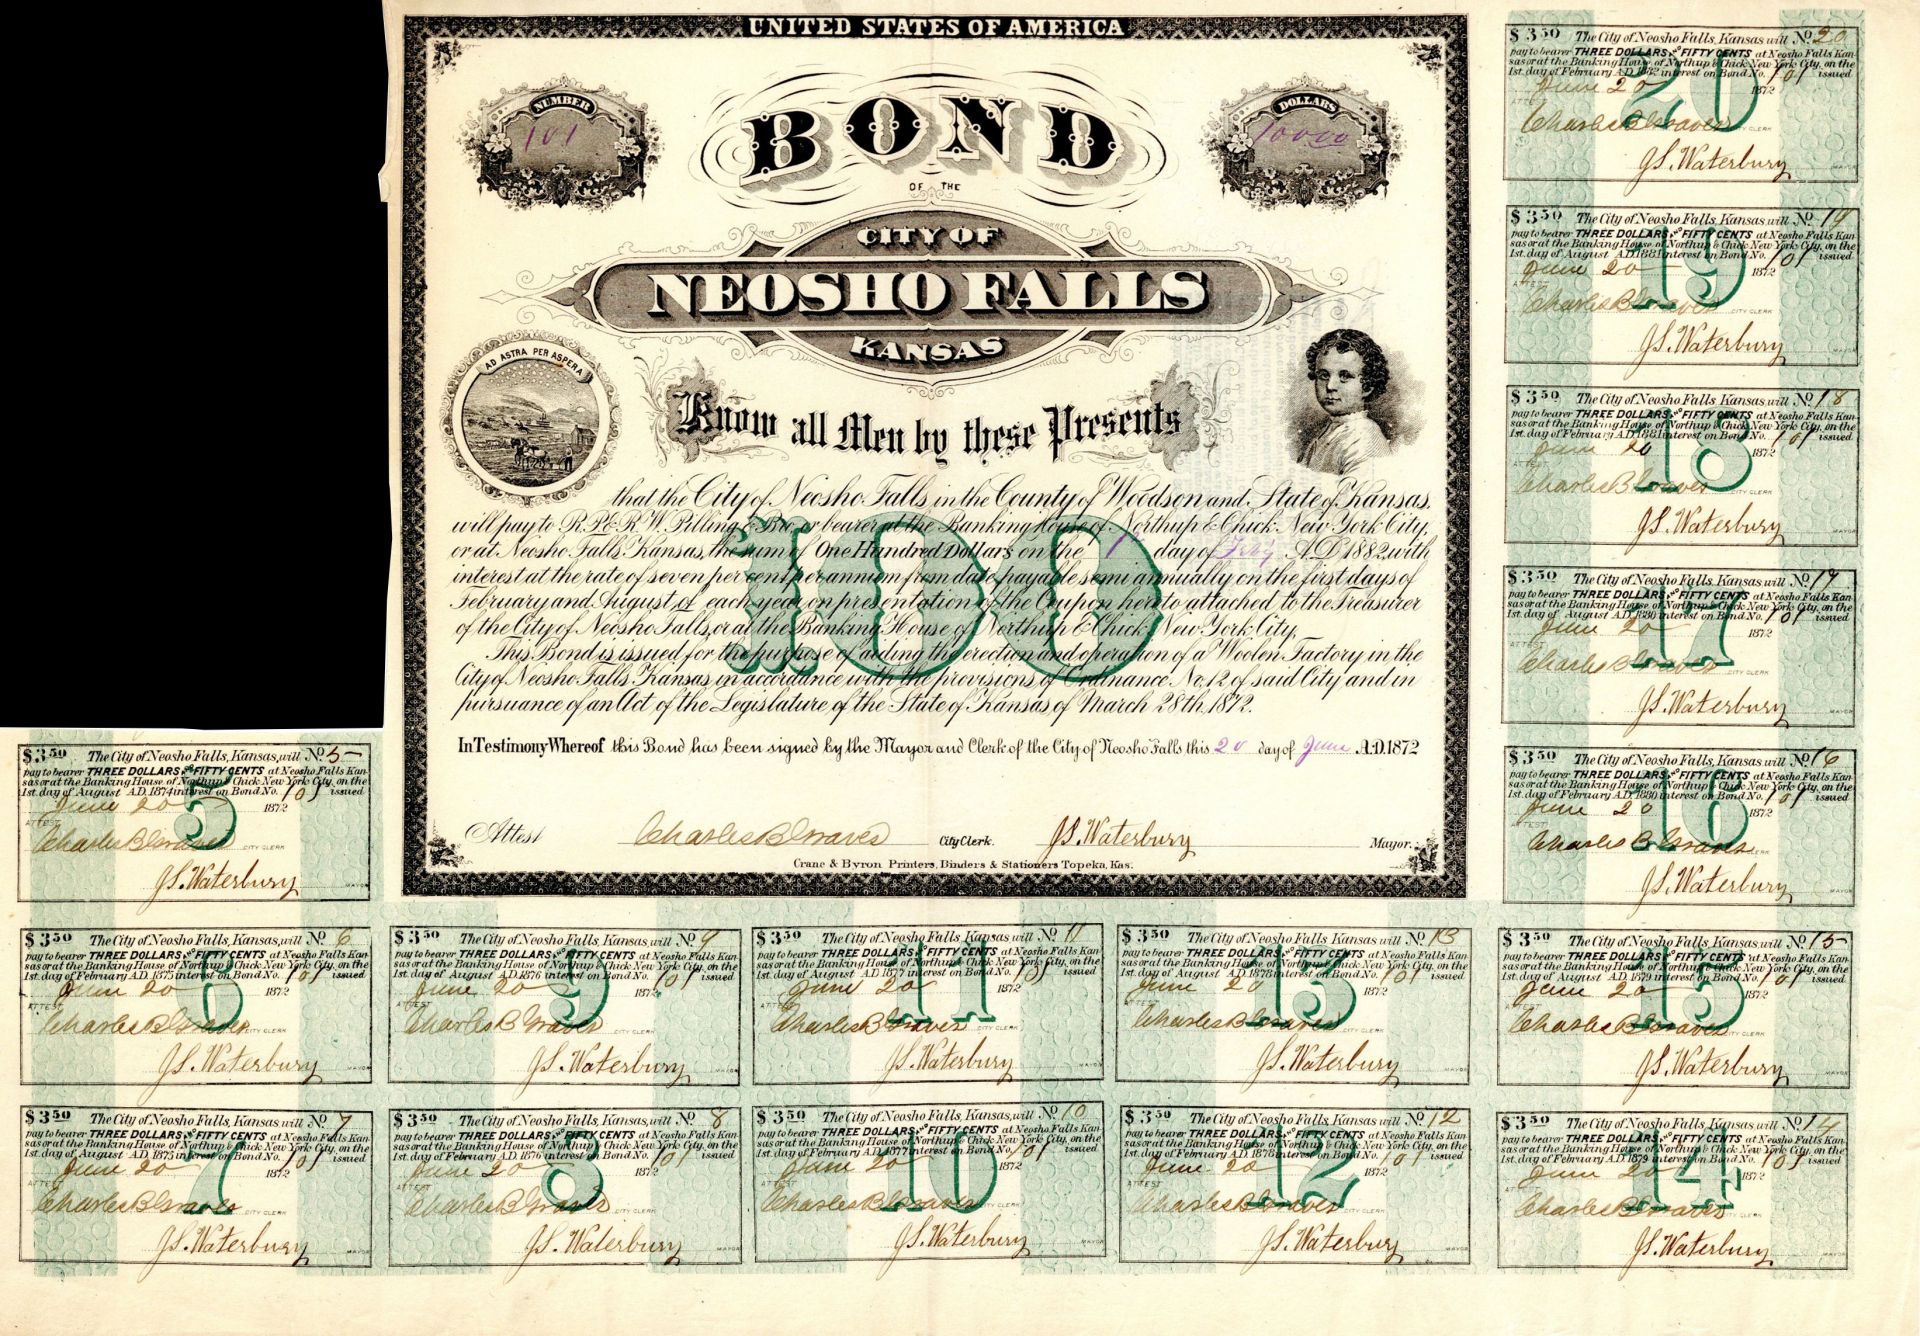 UNITED STATES OF AMERICA
NUMBER
101
BOND
DOLLARS
100 00
OF THE
CITY OF
NEOSHO FALLS
KANSAS
AD ASTRA PER ASPERA
Know all Men by these Presents
that the City of Neosho Falls in the County of Woodson and State of Kansas,
will pay to R.P. & R.W. Pilling & Bro. or bearer at the Banking House of Northup & Chick New York City,
or at Neosho Falls Kansas, the sum of One Hundred Dollars on the 1st day of Feby A.D. 1882, with
interest at the rate of seven per cent per annum from date payable semi annually on the first days of
February and August of each year on presentation of the Coupon hereto attached to the Treasurer
of the City of Neosho Falls, or at the Banking House of Northup & Chick, New York City.
This Bond is issued for the purpose of aiding the erection and operation of a Woolen Factory in the
City of Neosho Falls Kansas in accordance with the provisions of Ordinance No. 12 of said City and in
pursuance of an Act of the Legislature of the State of Kansas, of March 28th, 1872.
100
In Testimony Whereof this Bond has been signed by the Mayor and Clerk of the City of Neosho Falls this 20 day of June A.D. 1872
Attest Charles B Graves City Clerk. J.S. Waterbury Mayor.
Crane & Byron Printers, Binders & Stationers Topeka, Kas.
$3.50 The City of Neosho Falls, Kansas, will No. 20
pay to bearer THREE DOLLARS AND FIFTY CENTS at Neosho Falls Kan-
sas or at the Banking House of Northup & Chick New York City, on the
1st. day of February A.D. 1882 interest on Bond No. 101 issued
June 20 1872
20
ATTEST
Charles B Graves CITY CLERK
J.S. Waterbury MAYOR
$3.50 The City of Neosho Falls, Kansas, will No. 19
pay to bearer THREE DOLLARS AND FIFTY CENTS at Neosho Falls Kan-
sas or at the Banking House of Northup & Chick New York City, on the
1st. day of August A.D. 1881 interest on Bond No. 101 issued
June 20 1872
19
ATTEST
Charles B Graves CITY CLERK
J.S. Waterbury MAYOR
$3.50 The City of Neosho Falls, Kansas, will No. 18
pay to bearer THREE DOLLARS AND FIFTY CENTS at Neosho Falls Kan-
sas or at the Banking House of Northup & Chick New York City, on the
1st. day of February A.D. 1881 interest on Bond No. 101 issued
June 20 1872
18
ATTEST
Charles B Graves CITY CLERK
J.S. Waterbury MAYOR
$3.50 The City of Neosho Falls, Kansas, will No. 17
pay to bearer THREE DOLLARS AND FIFTY CENTS at Neosho Falls Kan-
sas or at the Banking House of Northup & Chick New York City, on the
1st. day of August A.D. 1880 interest on Bond No. 101 issued
June 20 1872
17
ATTEST
Charles B Graves CITY CLERK
J.S. Waterbury MAYOR
$3.50 The City of Neosho Falls, Kansas will No. 16
pay to bearer THREE DOLLARS AND FIFTY CENTS at Neosho Falls Kan-
sas or at the Banking House of Northup & Chick New York City, on the
1st. day of February A.D. 1880 interest on Bond No. 101 issued
June 20 1872
16
ATTEST
Charles B Graves CITY CLERK
J.S. Waterbury MAYOR
$3.50 The City of Neosho Falls, Kansas, will No. 5
pay to bearer THREE DOLLARS AND FIFTY CENTS at Neosho Falls Kan-
sas or at the Banking House of Northup & Chick New York City, on the
1st. day of August A.D. 1874 interest on Bond No. 101 issued
June 20 1872
5
ATTEST
Charles B Graves CITY CLERK
J.S. Waterbury MAYOR
$3.50 The City of Neosho Falls, Kansas, will No. 6
pay to bearer THREE DOLLARS AND FIFTY CENTS at Neosho Falls Kan-
sas or at the Banking House of Northup & Chick New York City, on the
1st. day of February A.D. 1875 interest on Bond No. 101 issued
June 20 1872
6
ATTEST
Charles B Graves CITY CLERK
J.S. Waterbury MAYOR
$3.50 The City of Neosho Falls, Kansas, will No. 9
pay to bearer THREE DOLLARS AND FIFTY CENTS at Neosho Falls Kan-
sas or at the Banking House of Northup & Chick New York City, on the
1st. day of August A.D. 1876 interest on Bond No. 101 issued
June 20 1872
9
ATTEST
Charles B Graves CITY CLERK
J.S. Waterbury MAYOR
$3.50 The City of Neosho Falls, Kansas, will No. 11
pay to bearer THREE DOLLARS AND FIFTY CENTS at Neosho Falls Kan-
sas or at the Banking House of Northup & Chick New York City, on the
1st. day of August A.D. 1877 interest on Bond No. 101 issued
June 20 1872
11
ATTEST
Charles B Graves CITY CLERK
J.S. Waterbury MAYOR
$3.50 The City of Neosho Falls, Kansas, will No. 13
pay to bearer THREE DOLLARS AND FIFTY CENTS at Neosho Falls Kan-
sas or at the Banking House of Northup & Chick New York City, on the
1st. day of August A.D. 1878 interest on Bond No. 101 issued
June 20 1872
13
ATTEST
Charles B Graves CITY CLERK
J.S. Waterbury MAYOR
$3.50 The City of Neosho Falls, Kansas, will No. 15
pay to bearer THREE DOLLARS AND FIFTY CENTS at Neosho Falls Kan-
sas or at the Banking House of Northup & Chick New York City, on the
1st. day of August A.D. 1879 interest on Bond No. 101 issued
June 20 1872
15
ATTEST
Charles B Graves CITY CLERK
J.S. Waterbury MAYOR
$3.50 The City of Neosho Falls, Kansas, will No. 7
pay to bearer THREE DOLLARS AND FIFTY CENTS at Neosho Falls Kan-
sas or at the Banking House of Northup & Chick New York City, on the
1st. day of August A.D. 1875 interest on Bond No. 101 issued
June 20 1872
7
ATTEST
Charles B Graves CITY CLERK
J.S. Waterbury MAYOR
$3.50 The City of Neosho Falls, Kansas, will No. 8
pay to bearer THREE DOLLARS AND FIFTY CENTS at Neosho Falls Kan-
sas or at the Banking House of Northup & Chick New York City, on the
1st. day of February A.D. 1876 interest on Bond No. 101 issued
June 20 1872
8
ATTEST
Charles B Graves CITY CLERK
J.S. Waterbury MAYOR
$3.50 The City of Neosho Falls, Kansas, will No. 10
pay to bearer THREE DOLLARS AND FIFTY CENTS at Neosho Falls Kan-
sas or at the Banking House of Northup & Chick New York City, on the
1st. day of February A.D. 1877 interest on Bond No. 101 issued
June 20 1872
10
ATTEST
Charles B Graves CITY CLERK
J.S. Waterbury MAYOR
$3.50 The City of Neosho Falls, Kansas, will No. 12
pay to bearer THREE DOLLARS AND FIFTY CENTS at Neosho Falls Kan-
sas or at the Banking House of Northup & Chick New York City, on the
1st. day of February A.D. 1878 interest on Bond No. 101 issued
June 20 1872
12
ATTEST
Charles B Graves CITY CLERK
J.S. Waterbury MAYOR
$3.50 The City of Neosho Falls, Kansas, will No. 14
pay to bearer THREE DOLLARS AND FIFTY CENTS at Neosho Falls Kan-
sas or at the Banking House of Northup & Chick New York City, on the
1st. day of February A.D. 1879 interest on Bond No. 101 issued
June 20 1872
14
ATTEST
Charles B Graves CITY CLERK
J.S. Waterbury MAYOR